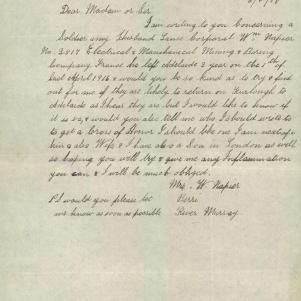 Dear Madam or Sir
I am writing to you Concerning a
Soldier my Husband Lance Corporal Wm Napier
No. 2817 Electrical & Mechanical Mining & Boring
Company France he left Adelaide 2 year on the 1st of
last April 1916 & would you be so kind as to try & find
out for me if they are likely to return on Furlough to
Adelaide as I hear they are but I would like to know if
it is so, & would you also tell me who I should wrote to
to get a Cross of Honor I should like one I am next of
kin also Wife & I have also a Son in London as well
so hoping you will try & give me any Inflammation
you can & I will be much obliged.
Mrs. W Napier
P.S would you please let Berri
me know as soon as possible River Murray